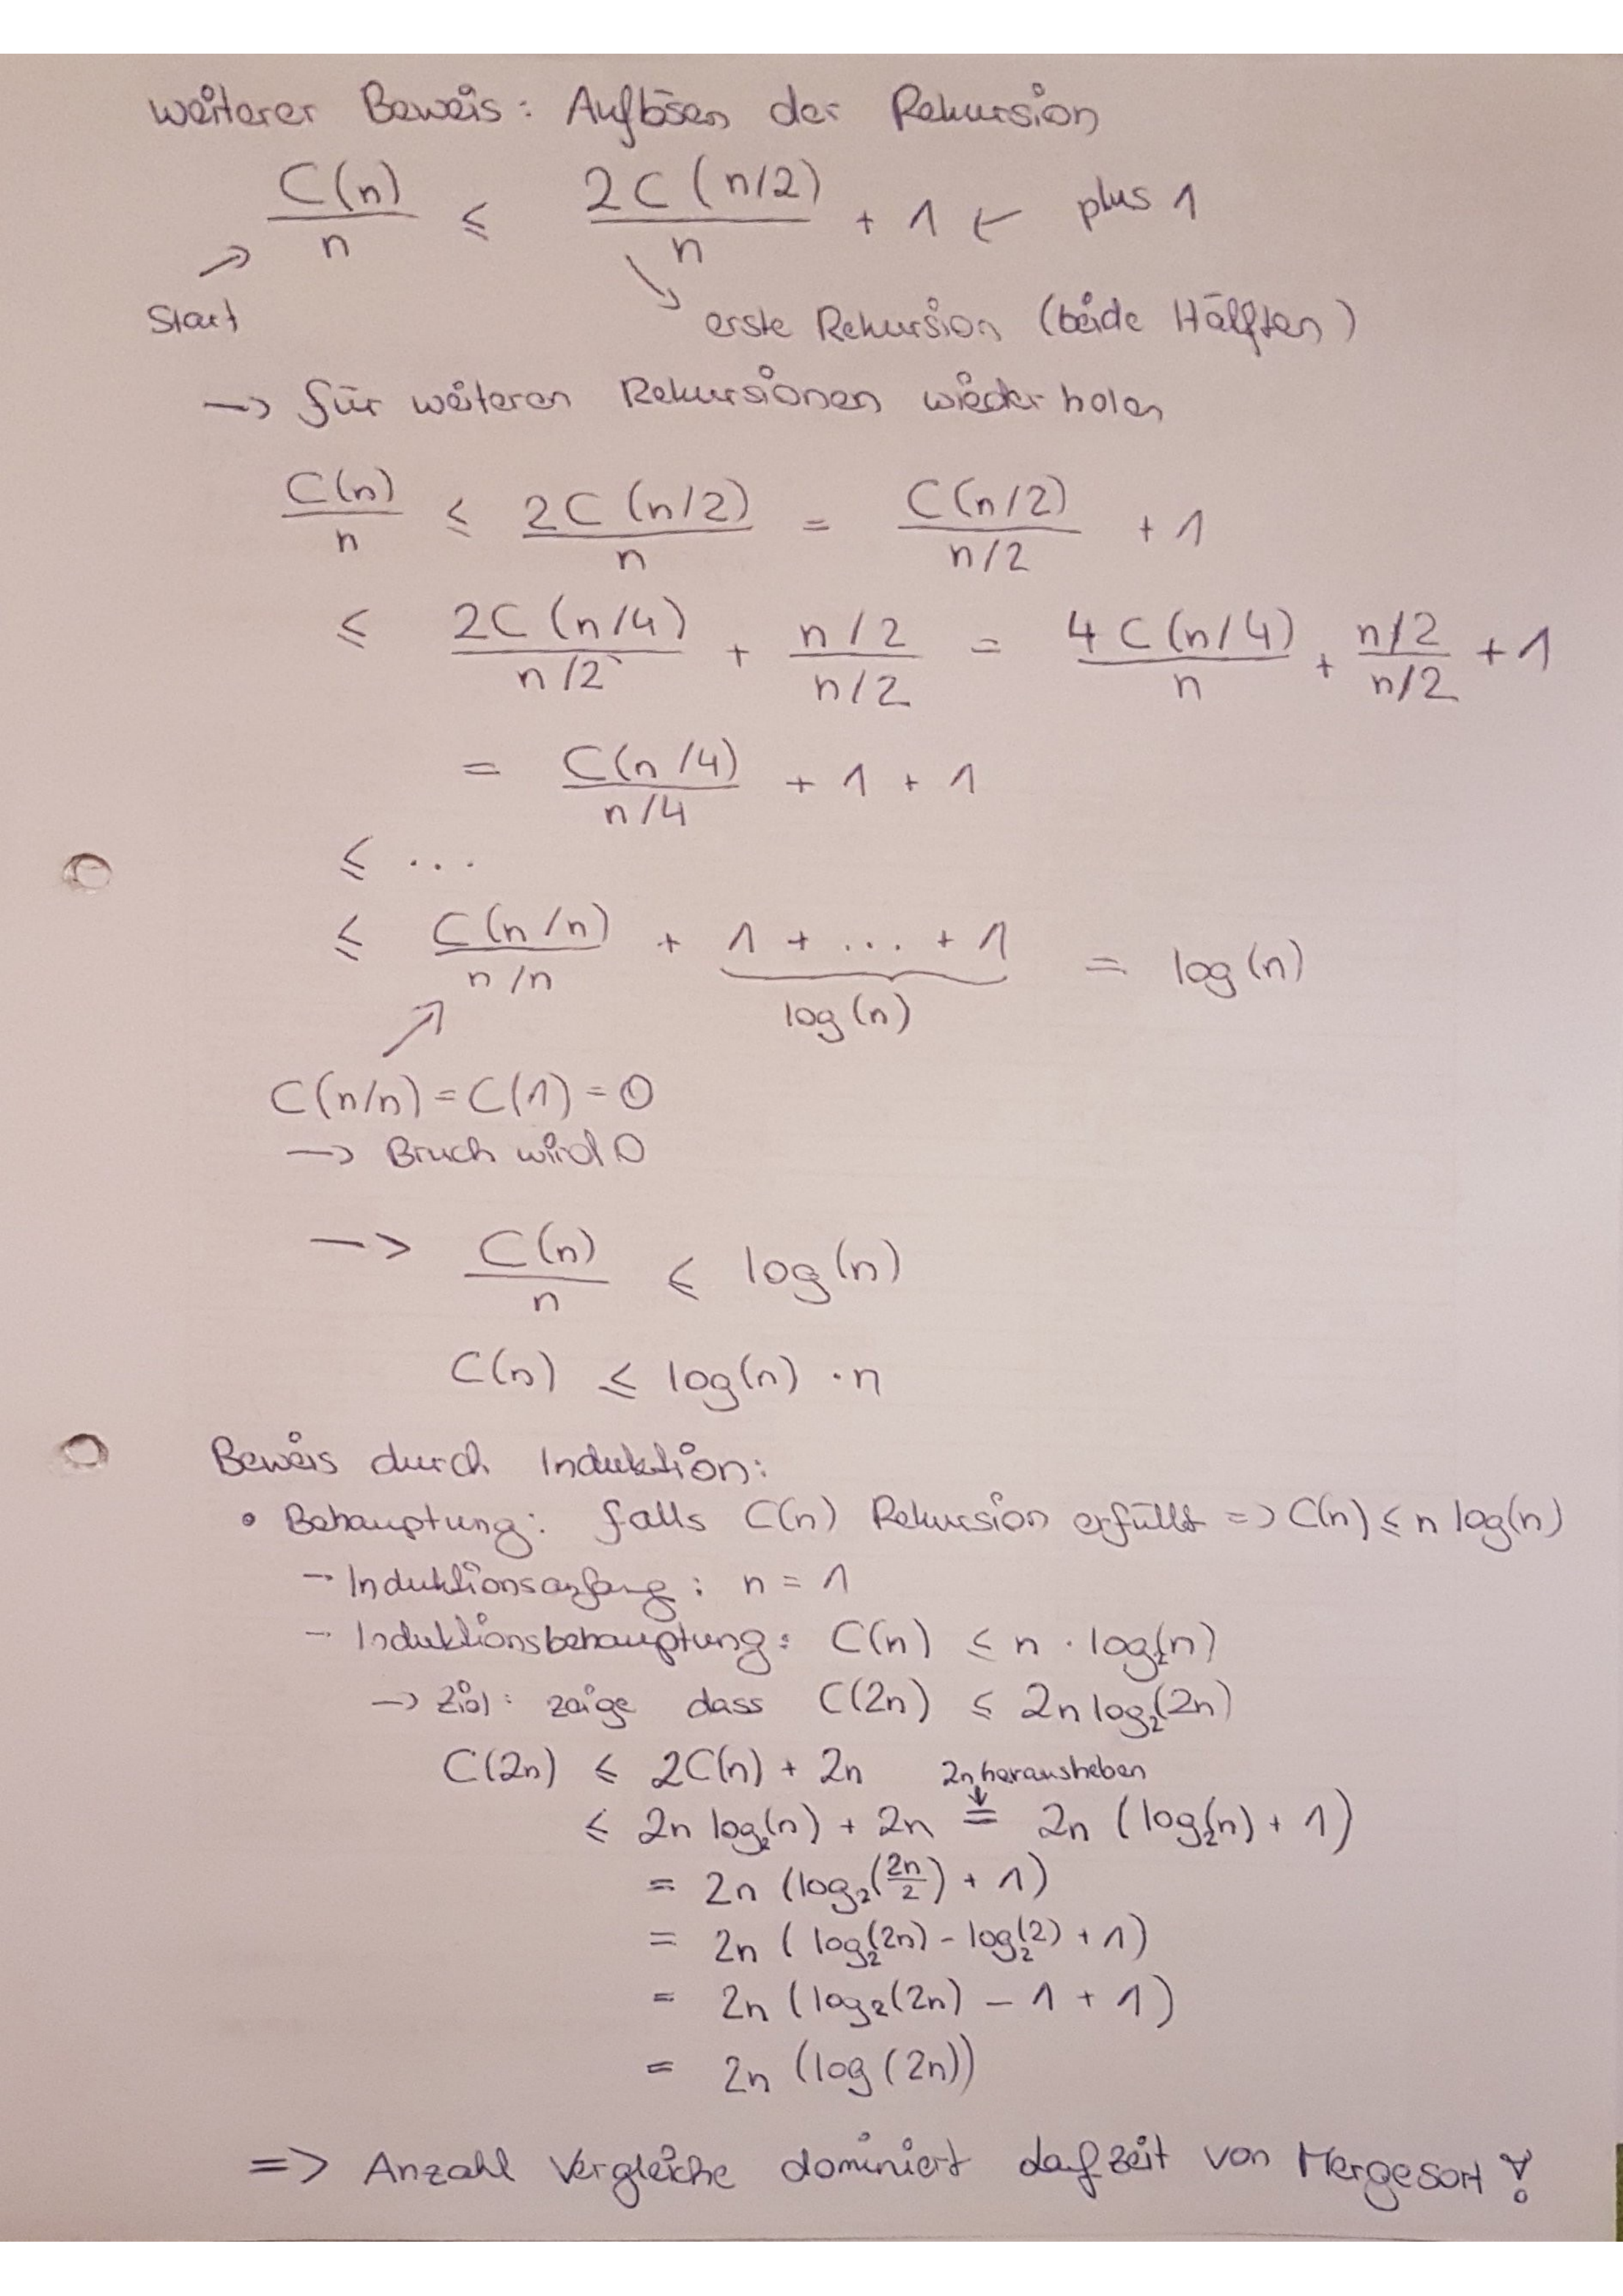 weiterer Beweis: Auflösen der Rekursion
C(n)/n ≤ 2C(n/2)/n + 1 ← plus 1
Start
erste Rekursion (beide Hälften)
→ für weiteren Rekursionen wiederholen
C(n)/n ≤ 2C(n/2)/n = C(n/2)/(n/2) + 1
≤ 2C(n/4)/(n/2) + (n/2)/(n/2) = 4C(n/4)/n + (n/2)/(n/2) + 1
= C(n/4)/(n/4) + 1 + 1
≤ ...
≤ C(n/n)/(n/n) + 1 + ... + 1 = log(n)
log(n)
C(n/n) = C(1) = 0
→ Bruch wird 0
→ C(n)/n ≤ log(n)
C(n) ≤ log(n) · n
Beweis durch Induktion:
• Behauptung: falls C(n) Rekursion erfüllt => C(n) ≤ n log(n)
- Induktionsanfang: n = 1
- Induktionsbehauptung: C(n) ≤ n · log₂(n)
→ Ziel: zeige dass C(2n) ≤ 2n log₂(2n)
C(2n) ≤ 2C(n) + 2n 2n herausheben
≤ 2n log₂(n) + 2n = 2n (log₂(n) + 1)
= 2n (log₂(2n/2) + 1)
= 2n (log₂(2n) - log₂(2) + 1)
= 2n (log₂(2n) - 1 + 1)
= 2n (log(2n))
=> Anzahl Vergleiche dominiert Laufzeit von Mergesort!